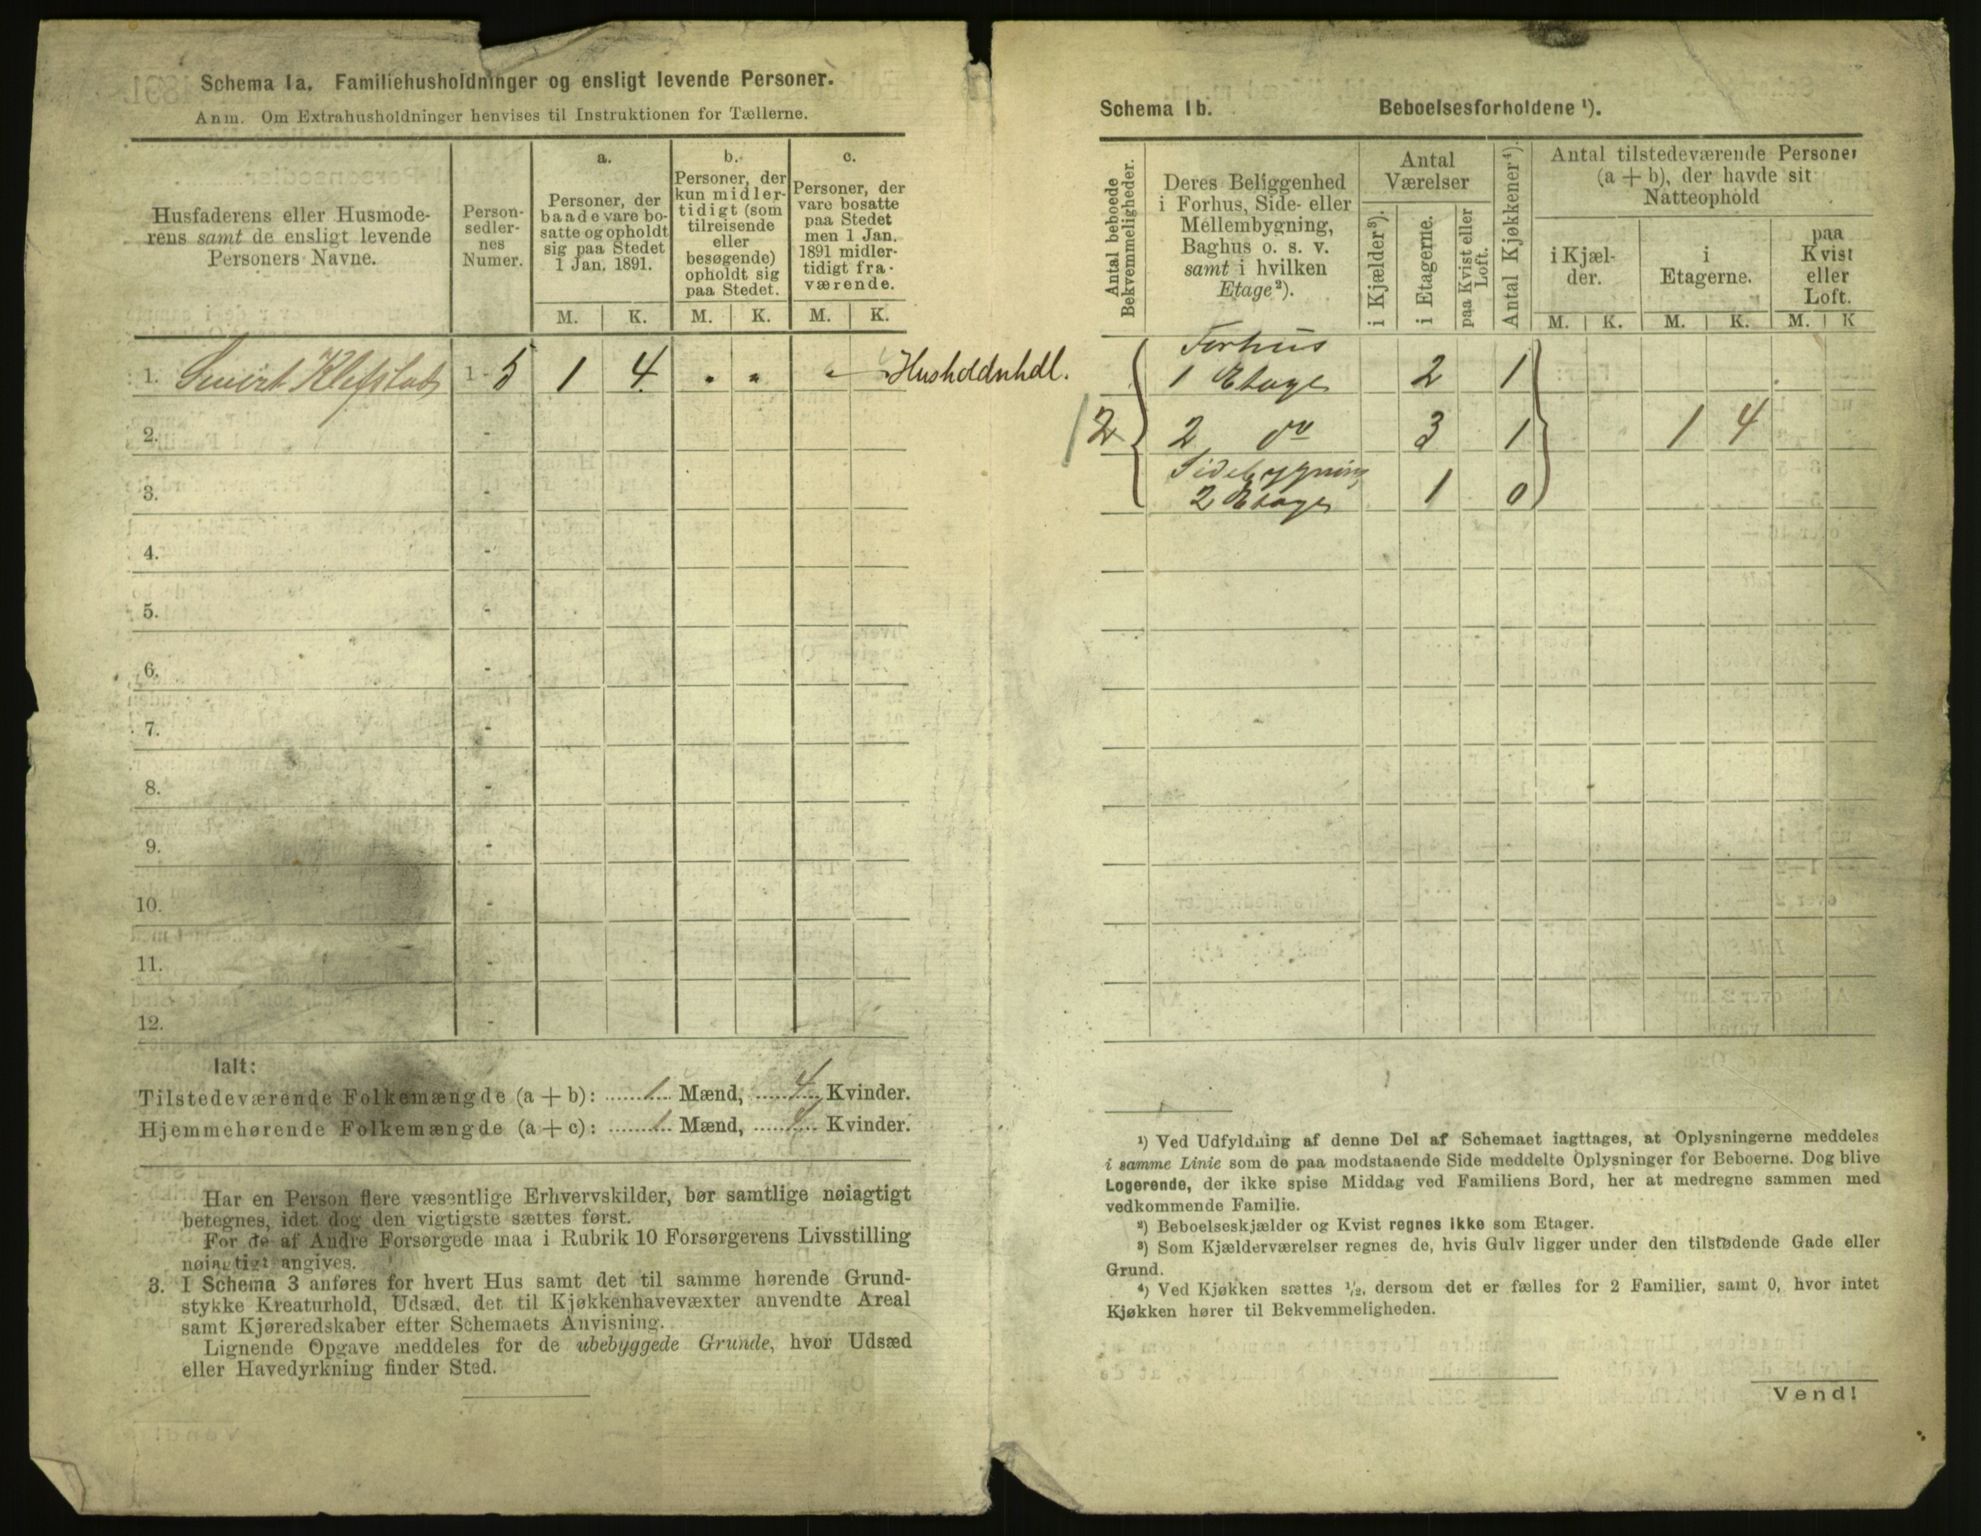 Schema 1a. Familiehusholdninger og ensligt levende Personer.
Anm. Om Extrahusholdninger henvises til Instruktionen for Tællerne.
Husfaderens eller Husmode-
rens samt de ensligt levende
Personers Navne.
Person-
sedler-
nes
Numer.
a.
Personer, der
baade vare bo-
satte og opholdt
sig paa Stedet
1 Jan. 1891.
b.
Personer, der
kun midler-
tidigt (som
tilreisende
eller
besøgende)
opholdt sig
paa Stedet.
c.
Personer, der
vare bosatte
paa Stedet
men 1 Jan.
1891 midler-
tidigt fra-
værende.
M. K. M. K. M. K.
1. Klefstad 1 - 5 1 4 Husholdnhdl.
2. -
3. -
4. -
5. -
6. -
7. -
8. -
9. -
10. -
11. -
12. -
Ialt:
Tilstedeværende Folkemængde (a + b): 1 Mænd, 4 Kvinder.
Hjemmehørende Folkemængde (a + c): 1 Mænd, 4 Kvinder.
Har en Person flere væsentlige Erhvervskilder, bør samtlige nøiagtigt
betegnes, idet dog den vigtigste sættes først.
For de af Andre Forsørgede maa i Rubrik 10 Forsørgerens Livsstilling
nøiagtigt angives.
3. I Schema 3 anføres for hvert Hus samt det til samme hørende Grund-
stykke Kreaturhold, Udsæd, det til Kjøkkenhavevæxter anvendte Areal
samt Kjøreredskaber efter Schemaets Anvisning.
Lignende Opgave meddeles for de ubebyggede Grunde, hvor Udsæd
eller Havedyrkning finder Sted.
Schema 1b. Beboelsesforholdene ¹).
Antal beboede
Bekvemmeligheder.
Deres Beliggenhed
i Forhus, Side- eller
Mellembygning,
Baghus o. s. v.
samt i hvilken
Etage²).
Antal
Værelser
i Kjælder³).
i Etagerne.
paa Kvist eller
Loft.
Antal Kjøkkener⁴).
Antal tilstedeværende Personer
(a + b), der havde sit
Natteophold
i Kjæl-
der.
i
Etagerne.
paa
Kvist
eller
Loft.
M. K. M. K. M. K
Forhus
1 Etage 2 1
2 2 do 3 1 1 4
Sidebygning
2 Etage 1 0
¹) Ved Udfyldning af denne Del af Schemaet iagttages, at Oplysningerne meddeles
i samme Linie som de paa modstaaende Side meddelte Oplysninger for Beboerne. Dog blive
Logerende, der ikke spise Middag ved Familiens Bord, her at medregne sammen med
vedkommende Familie.
²) Beboelseskjælder og Kvist regnes ikke som Etager.
³) Som Kjælderværelser regnes de, hvis Gulv ligger under den tilstødende Gade eller
Grund.
⁴) Ved Kjøkken sættes ½, dersom det er fælles for 2 Familier, samt 0, hvor intet
Kjøkken hører til Bekvemmeligheden.
Vend!